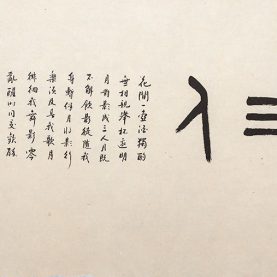 三人
花間一壺酒獨酌
無相親舉杯邀明
月對影成三人月既
不解飲影徒隨我
身暫伴月將影行
樂須及春我歌月
徘徊我舞影零
亂醒时同交歡醉